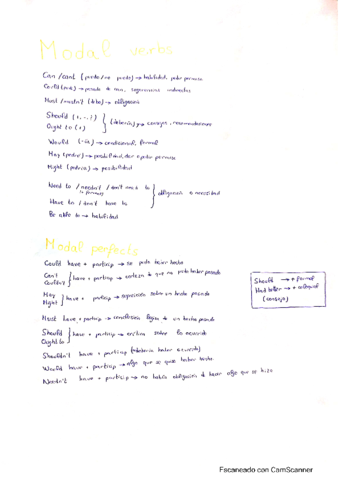 Modal verbs
Can / can't (puedo / no puedo) → habilidad, pedir permiso
Could (podía) → pasado de can, sugerencias indirectas
Must / mustn't (debo) → obligación
Should (+, -, ?)
Ought to (+)
(debería) → consejos, recomendaciones
Would (-ía) → condicional, formal
May (podría) → posibilidad, dar o pedir permiso
Might (podría) → posibilidad
Need to / needn't / don't need to
Have to / don't have to
obligación o necesidad
Be able to → habilidad
Modal perfects
Could have + particip → se pudo haber hecho
Can't
Couldn't
have + particip → certeza de que no pudo haber pasado
May
Might
have + particip → suposición sobre un hecho pasado
Must have + particip → conclusión lógica de un hecho pasado
Should
Ought to
have + particip → crítica sobre lo ocurrido
Shouldn't have + particip (no debería haber ocurrido)
Would have + particip → algo que se quiso haber hecho
Needn't have + particip → no había obligación de hacer algo que se hizo
Should → + formal
Had better → + coloquial
(consejo)
Escaneado con CamScanner